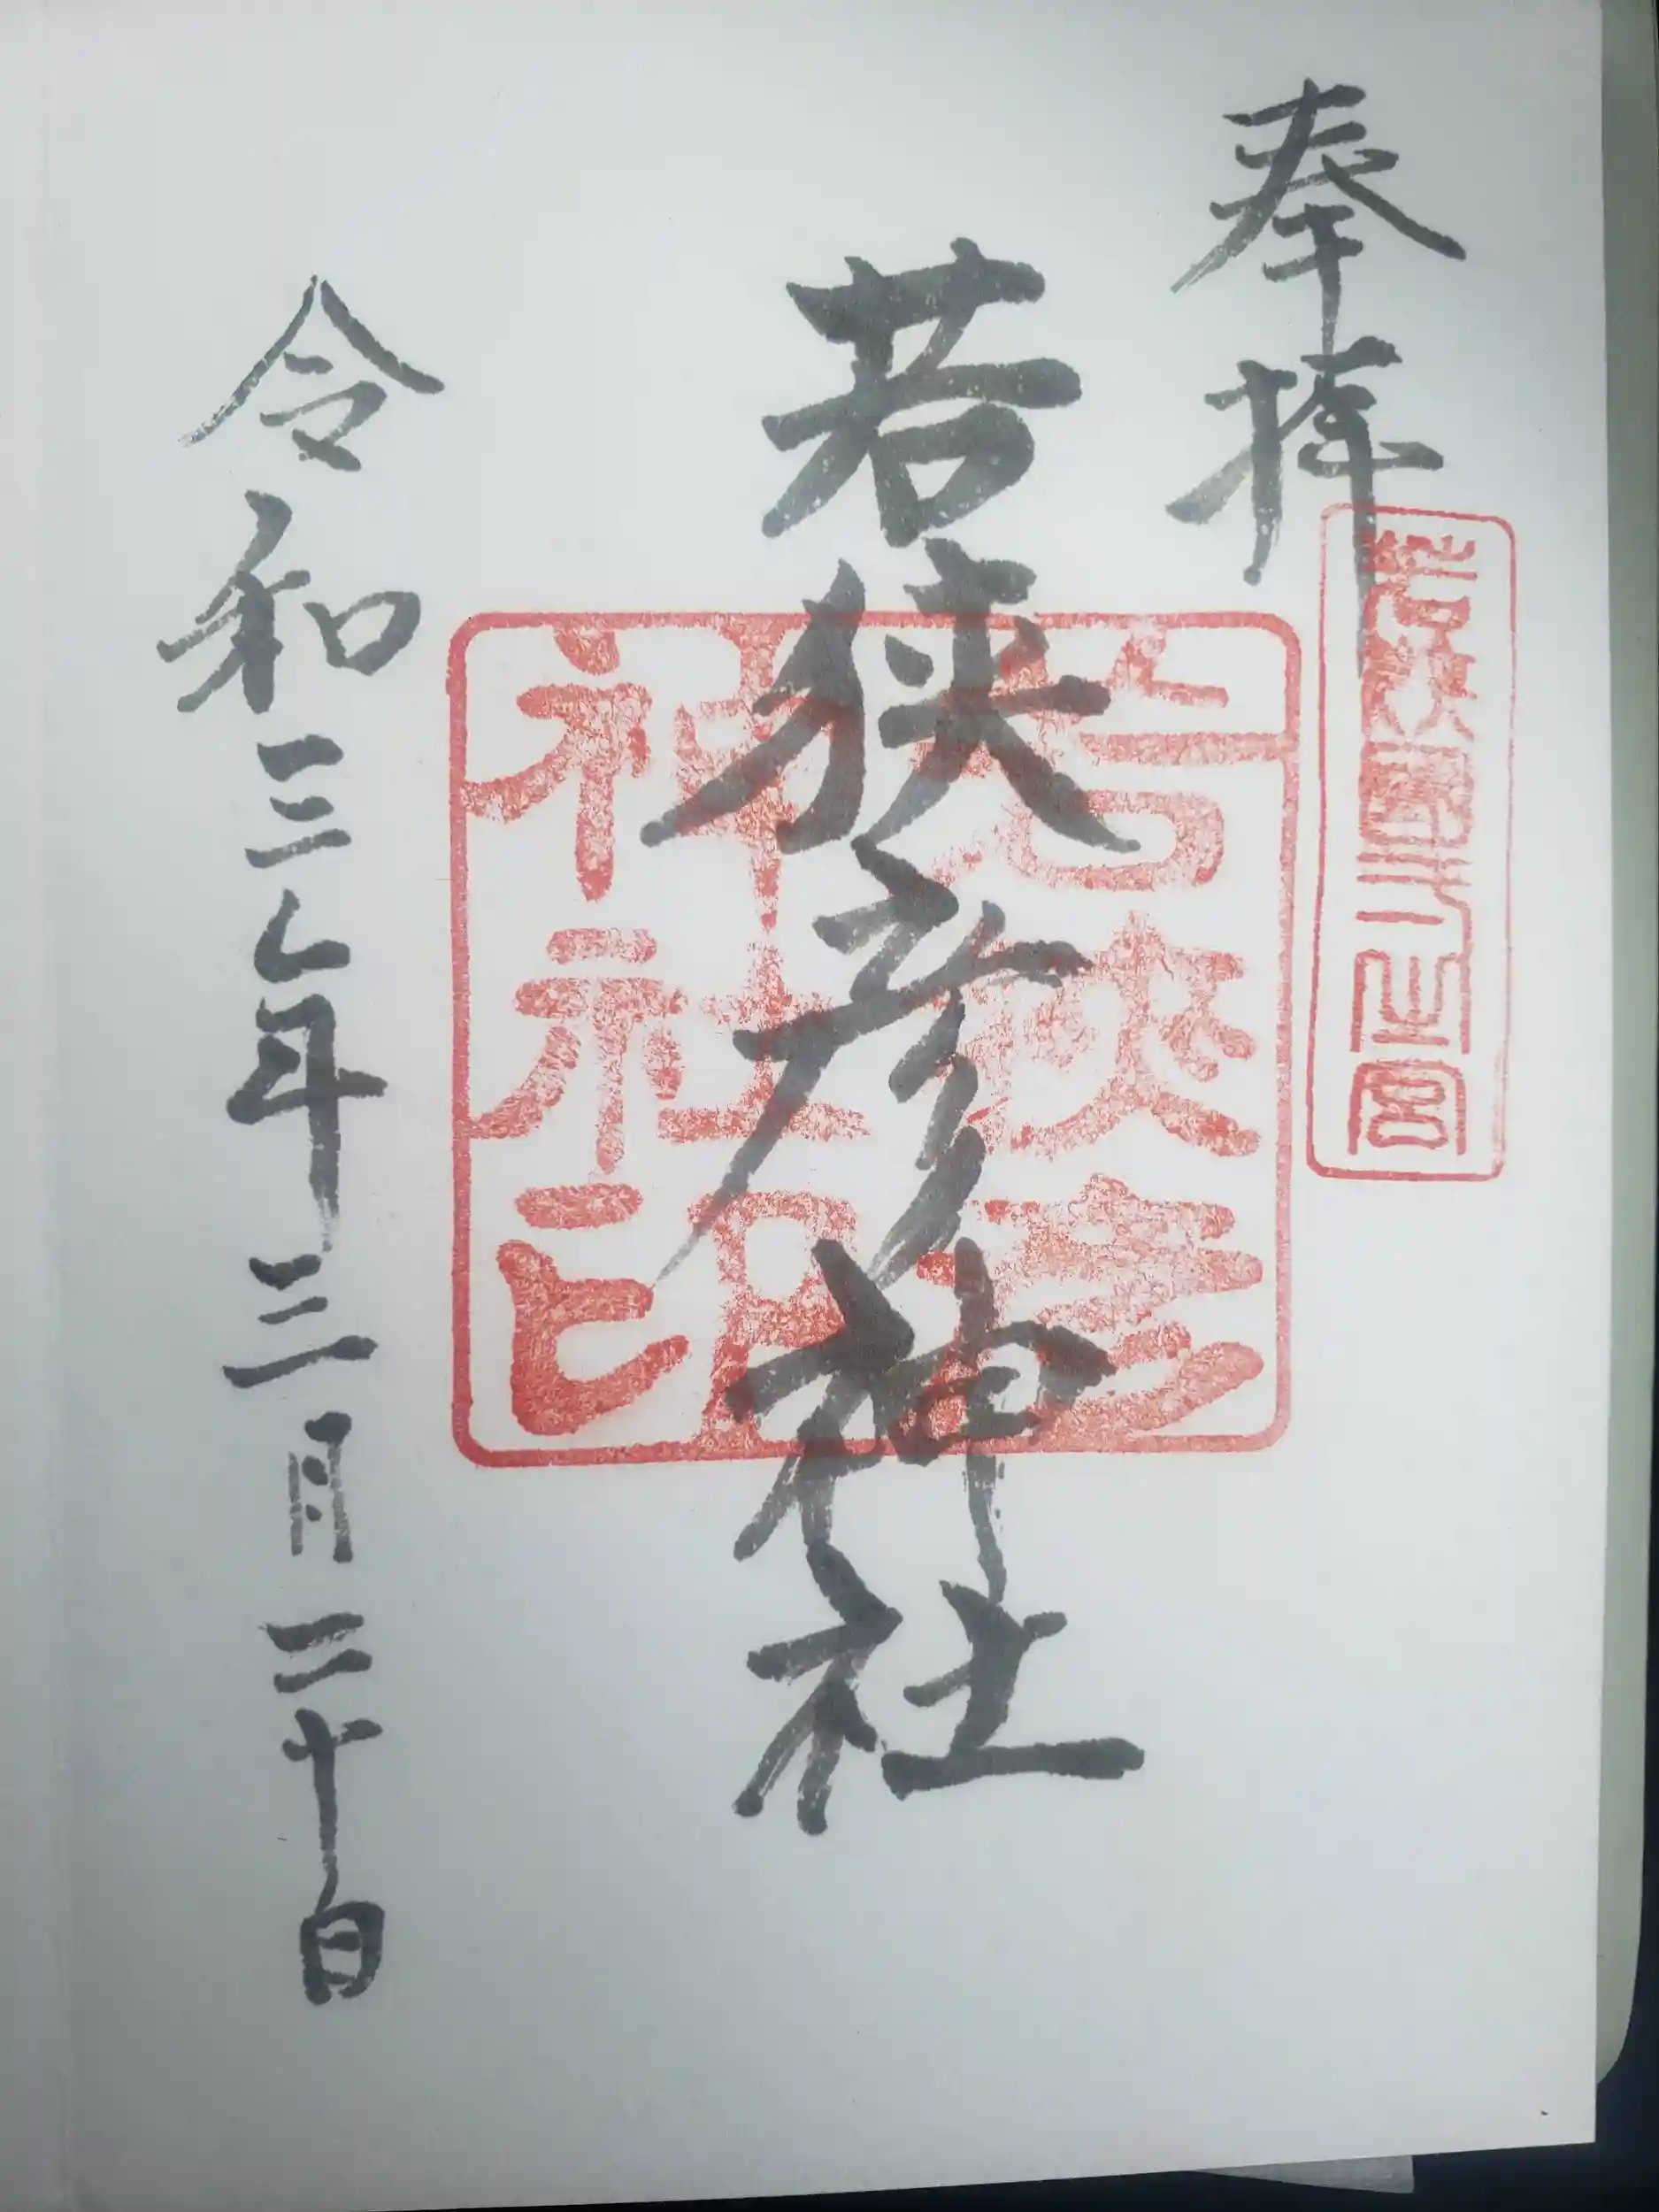 奉拝
若狭國一之宮
若狭彦神社
若狭彦神社印
令和三年三月二十日